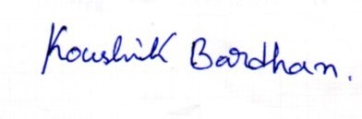 Koushik Bardhan.